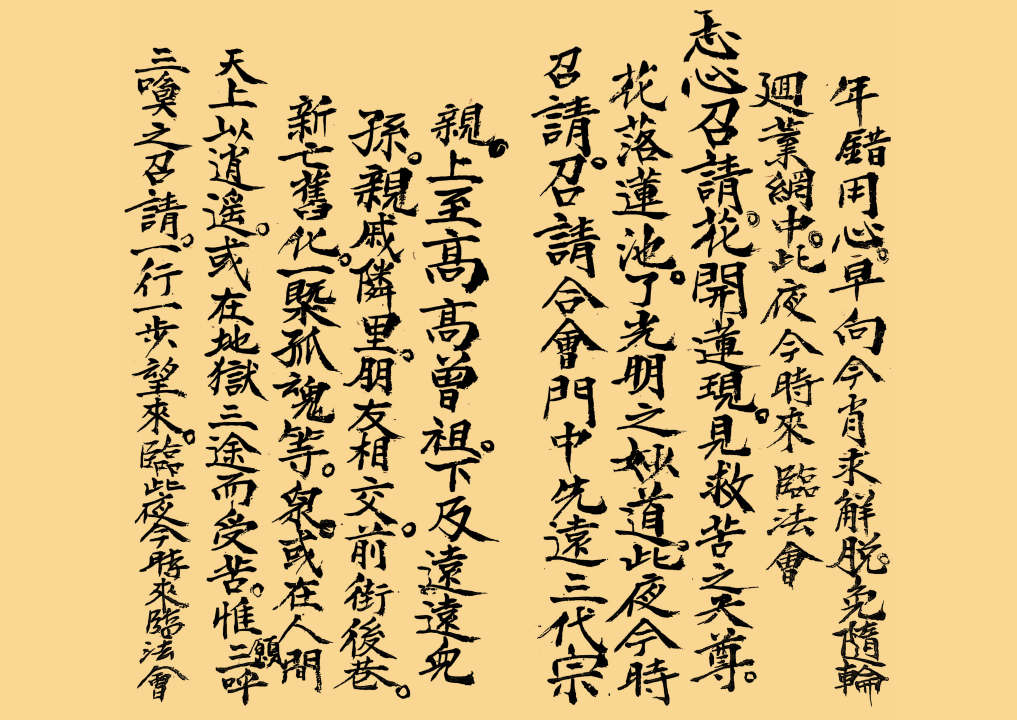 年錯用心。早向今宵求解脱。免隨輪
廻業網中。此夜今時來臨法會
志心召請。花開蓮現。見救苦之天尊。
花落蓮池。了光明之妙道。此夜今時
召請。召請合會門中先遠三代宗
親。上至高高曾祖。下及遠遠兒
孫。親戚隣里。朋友相交。前街後巷。
新亡舊化。一槩孤魂等。衆。或在人間
天上以逍遥。或在地獄三途而受苦。惟願三呼
三喚之召請。一行一步望來。臨此夜今時來臨法會